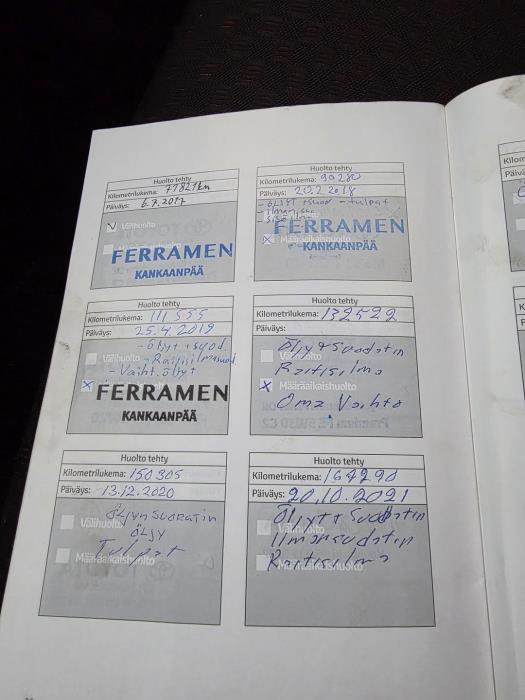 Huolto tehty
Kilometrilukema: 77821km
Päiväys: 6.7.2017
Välihuolto
FERRAMEN
KANKAANPÄÄ
Huolto tehty
Kilometrilukema: 90280
Päiväys: 20.2.2018
- öljyt + suod - tulpat
- ilmansuo
Määräaikaishuolto
FERRAMEN
KANKAANPÄÄ
Huolto tehty
Kilometrilukema: 111 555
Päiväys: 25.4.2019
- öljyt + suod.
- Raitisilmasuod.
- Vaiht. öljyt
FERRAMEN
KANKAANPÄÄ
Huolto tehty
Kilometrilukema: 132522
Päiväys:
Öljy + Suodatin
Välihuolto
Raitisilma
Määräaikaishuolto
Oma Vaihto
Huolto tehty
Kilometrilukema: 150305
Päiväys: 13.12.2020
ÖLJYNSUODATIN
Välihuolto
ÖLJY
Tulpat
Määräaikaishuolto
Huolto tehty
Kilometrilukema: 164290
Päiväys: 20.10.2021
Öljyt + Suodatin
Ilmansuodatin
Raitisilma